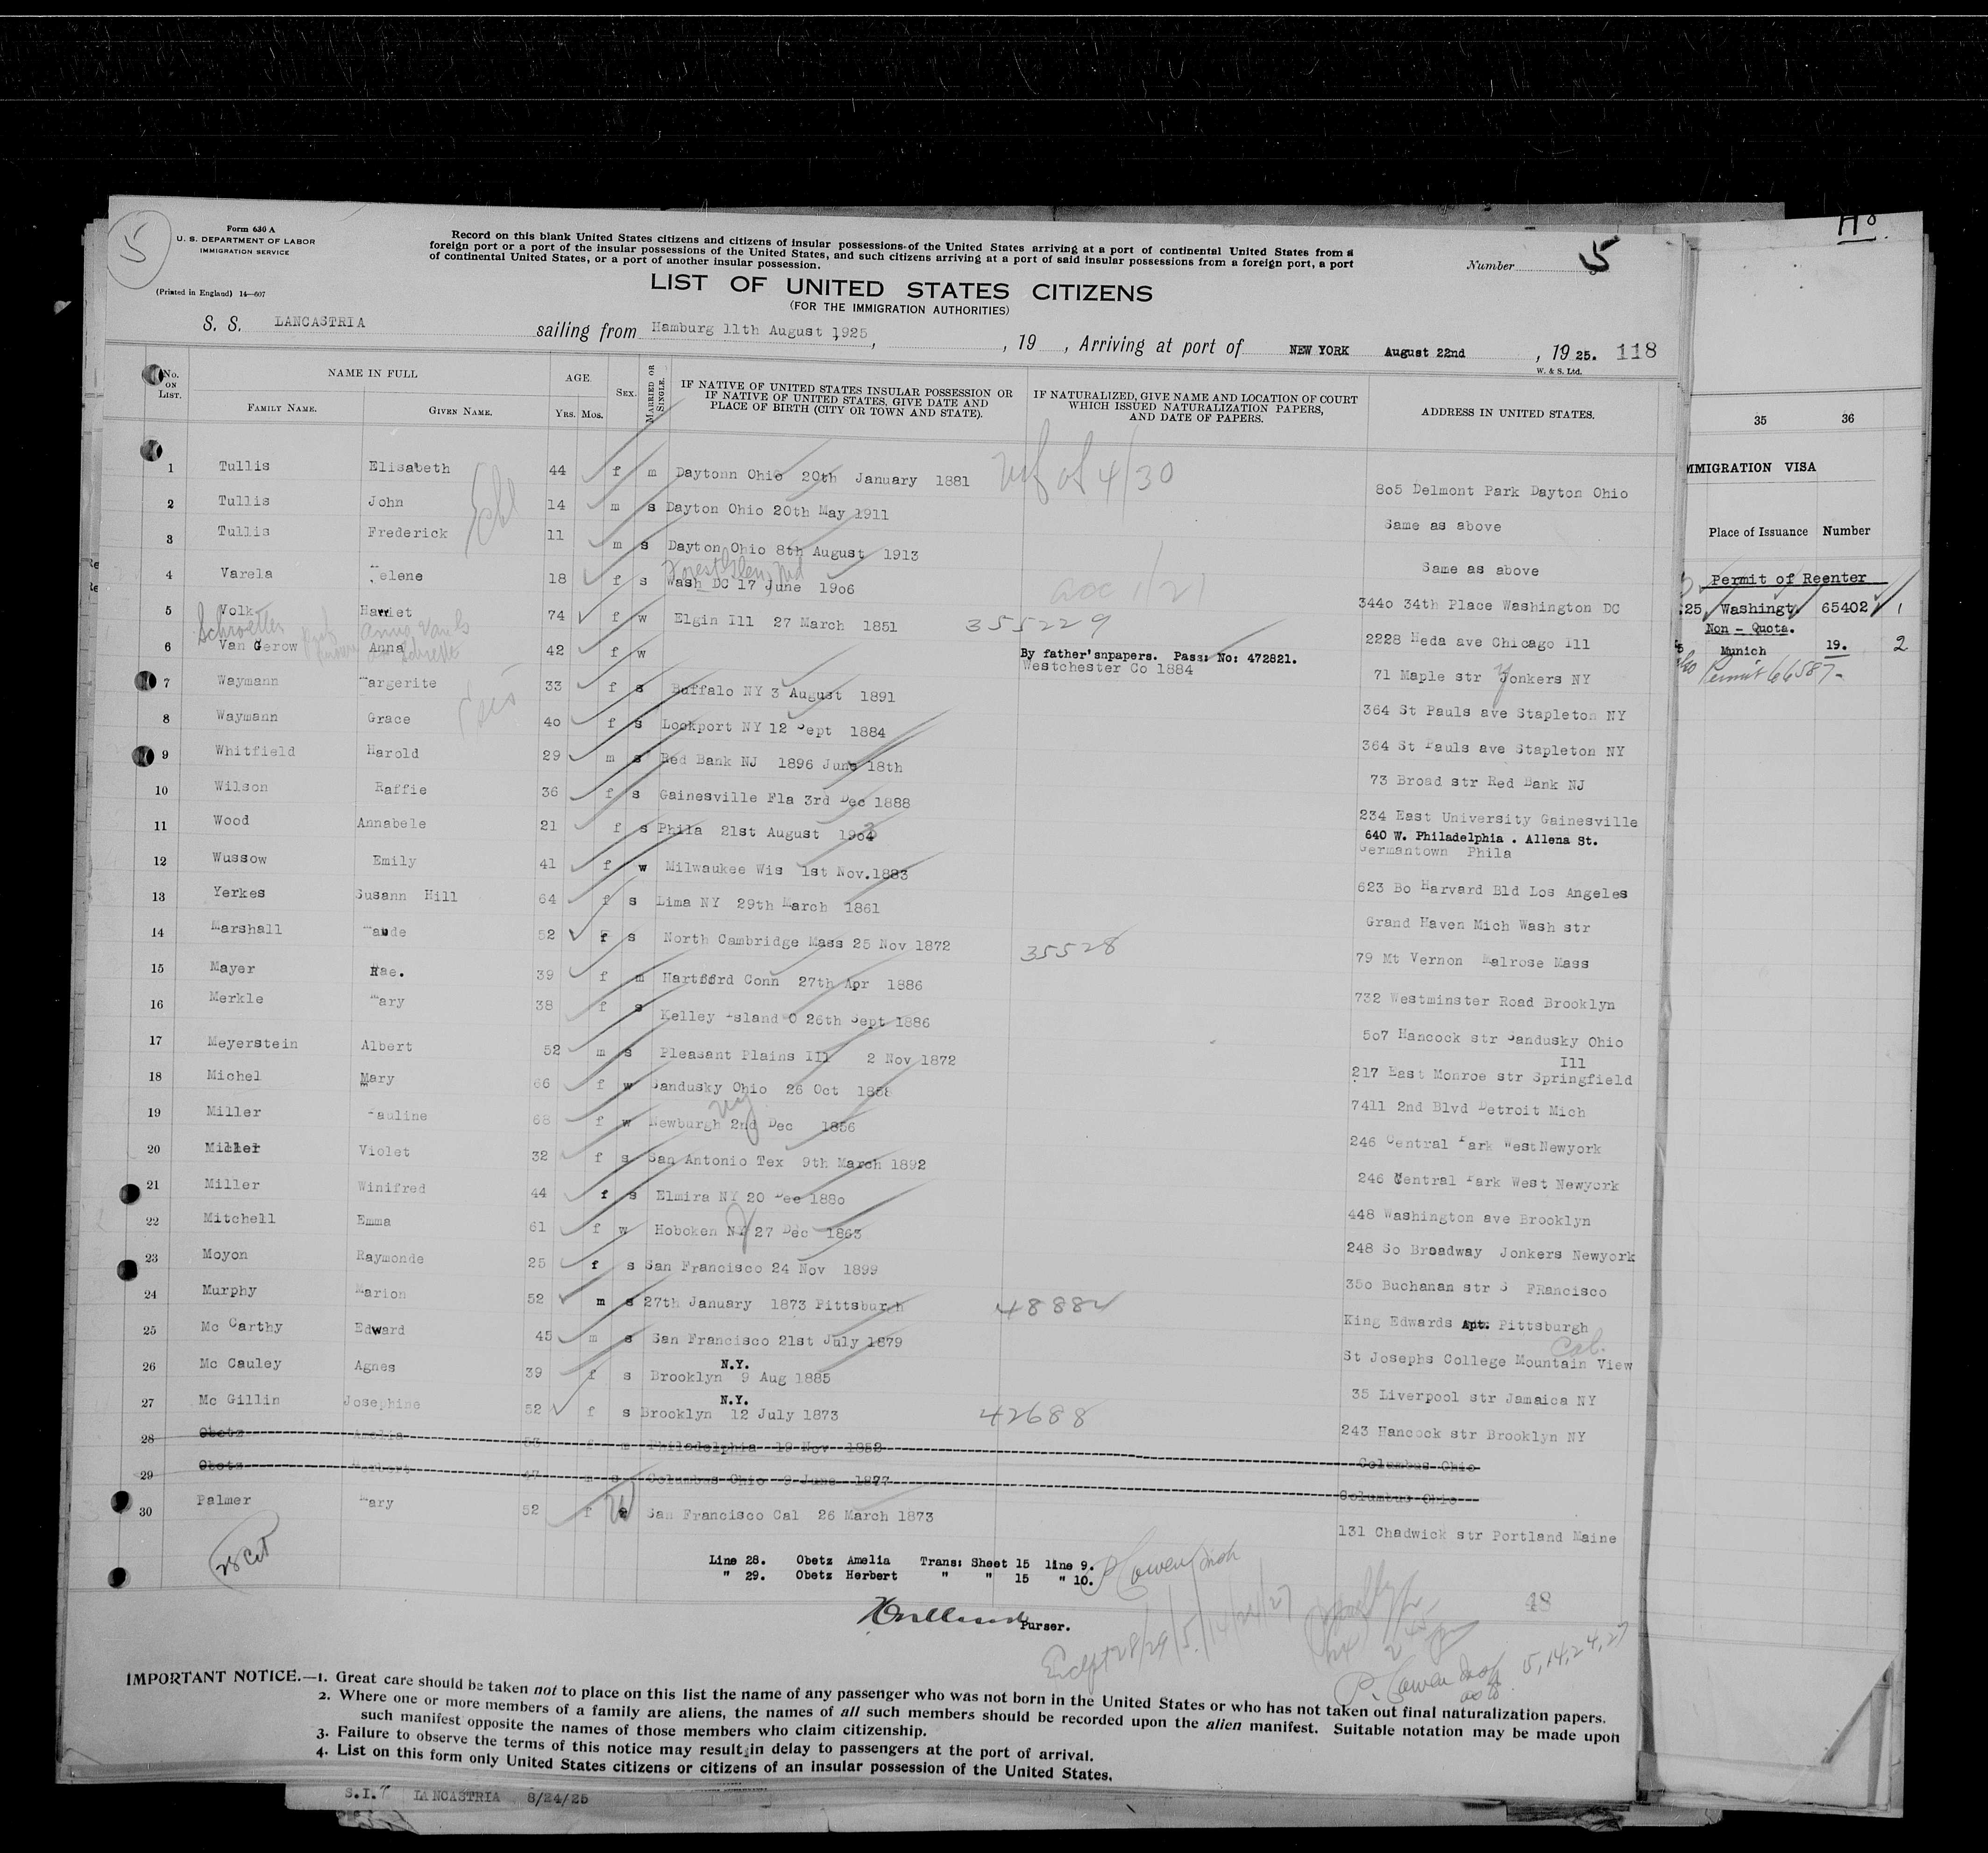 5
Form 630 A
U. S. DEPARTMENT OF LABOR
IMMIGRATION SERVICE
(Printed in England) 14—607
Record on this blank United States citizens and citizens of insular possessions of the United States arriving at a port of continental United States from a
foreign port or a port of the insular possessions of the United States, and such citizens arriving at a port of said insular possessions from a foreign port, a port
of continental United States, or a port of another insular possession.
Number 5
LIST OF UNITED STATES CITIZENS
(FOR THE IMMIGRATION AUTHORITIES)
S. S. LANCASTRIA sailing from Hamburg 11th August 1925, , 19 , Arriving at port of NEW YORK August 22nd , 19 25. 118
W. & S. Ltd.
No. ON LIST. NAME IN FULL AGE. SEX. MARRIED OR SINGLE. IF NATIVE OF UNITED STATES INSULAR POSSESSION OR IF NATIVE OF UNITED STATES, GIVE DATE AND PLACE OF BIRTH (CITY OR TOWN AND STATE). IF NATURALIZED, GIVE NAME AND LOCATION OF COURT WHICH ISSUED NATURALIZATION PAPERS, AND DATE OF PAPERS. ADDRESS IN UNITED STATES.
FAMILY NAME. GIVEN NAME. YRS. MOS.
1 Tullis Elisabeth 44 f m Daytonn Ohio 20th January 1881 805 Delmont Park Dayton Ohio
2 Tullis John 14 m s Dayton Ohio 20th May 1911 Same as above
3 Tullis Frederick 11 m s Dayton Ohio 8th August 1913 Same as above
Forest Glen, Md
4 Varela Helene 18 f s Wash DC 17 June 1906 3440 34th Place Washington DC
5 Volk Harriet 74 f w Elgin Ill 27 March 1851 355229 2228 Heda ave Chicago Ill
6 Van Gerow Anna 42 f w By father'snpapers. Pass: No: 472821. Westchester Co 1884 71 Maple str Yonkers NY
7 Waymann Margerite 33 f s Buffalo NY 3 August 1891 364 St Pauls ave Stapleton NY
8 Waymann Grace 40 f s Lockport NY 12 Sept 1884 364 St Pauls ave Stapleton NY
9 Whitfield Harold 29 m s Red Bank NJ 1896 June 18th 73 Broad str Red Bank NJ
10 Wilson Raffie 36 f s Gainesville Fla 3rd Dec 1888 234 East University Gainesville
11 Wood Annabele 21 f s Phila 21st August 1903 640 W. Philadelphia . Allena St. Germantown Phila
12 Wussow Emily 41 f w Milwaukee Wis 1st Nov.1883 623 Bo Harvard Bld Los Angeles
13 Yerkes Susann Hill 64 f s Lima NY 29th March 1861 Grand Haven Mich Wash str
14 Marshall Maude 52 f s North Cambridge Mass 25 Nov 1872 35528 79 Mt Vernon Malrose Mass
15 Mayer Rae. 39 f m Hartford Conn 27th Apr 1886 732 Westminster Road Brooklyn
16 Merkle Mary 38 f s Kelley Island O 26th Sept 1886 507 Hancock str Sandusky Ohio
17 Meyerstein Albert 52 m s Pleasant Plains Ill 2 Nov 1872 217 East Monroe str Springfield Ill
18 Michel Mary 66 f w Sandusky Ohio 26 Oct 1858 7411 2nd Blvd Detroit Mich
19 Miller Pauline 68 f w Newburgh NY 2nd Dec 1856 246 Central Park WestNewyork
20 Miller Violet 32 f s San Antonio Tex 9th March 1892 246 Central Park West Newyork
21 Miller Winifred 44 f s Elmira NY 20 Dec 1880 448 Washington ave Brooklyn
22 Mitchell Emma 61 f w Hoboken NJ 27 Dec 1863 248 So Broadway Jonkers Newyork
23 Moyon Raymonde 25 f s San Francisco 24 Nov 1899 350 Buchanan str S FRancisco
24 Murphy Marion 52 m s 27th January 1873 Pittsburgh 48882 King Edwards Apt. Pittsburgh
25 Mc Carthy Edward 45 m s San Francisco 21st July 1879 St Josephs College Mountain View Cal.
26 Mc Cauley Agnes 39 f s Brooklyn N.Y. 9 Aug 1885 35 Liverpool str Jamaica NY
27 Mc Gillin Josephine 52 f s Brooklyn N.Y. 12 July 1873 42688 243 Hancock str Brooklyn NY
28 Obetz Amelia 53 f m Philadelphia 19 Nov 1852 Columbus Ohio
29 Obetz Herbert 47 m s Columbus Ohio 9 June 1877 Columbus Ohio
30 Palmer Mary 52 f W San Francisco Cal 26 March 1873 131 Chadwick str Portland Maine
28 Cit
Line 28. Obetz Amelia Trans: Sheet 15 line 9.
" 29. Obetz Herbert " " 15 " 10.
Purser.
48
Except 28/29/5/14/24/27
P. Cowen 5, 14, 24, 27
IMPORTANT NOTICE.—1. Great care should be taken not to place on this list the name of any passenger who was not born in the United States or who has not taken out final naturalization papers.
2. Where one or more members of a family are aliens, the names of all such members should be recorded upon the alien manifest. Suitable notation may be made upon
such manifest opposite the names of those members who claim citizenship.
3. Failure to observe the terms of this notice may result in delay to passengers at the port of arrival.
4. List on this form only United States citizens or citizens of an insular possession of the United States.
S.I. LANCASTRIA 8/24/25
35 36
IMMIGRATION VISA
Place of Issuance Number
Permit of Reenter
25, Washingt. 65402 1
Non - Quota.
Munich 19. 2
Permit 66587